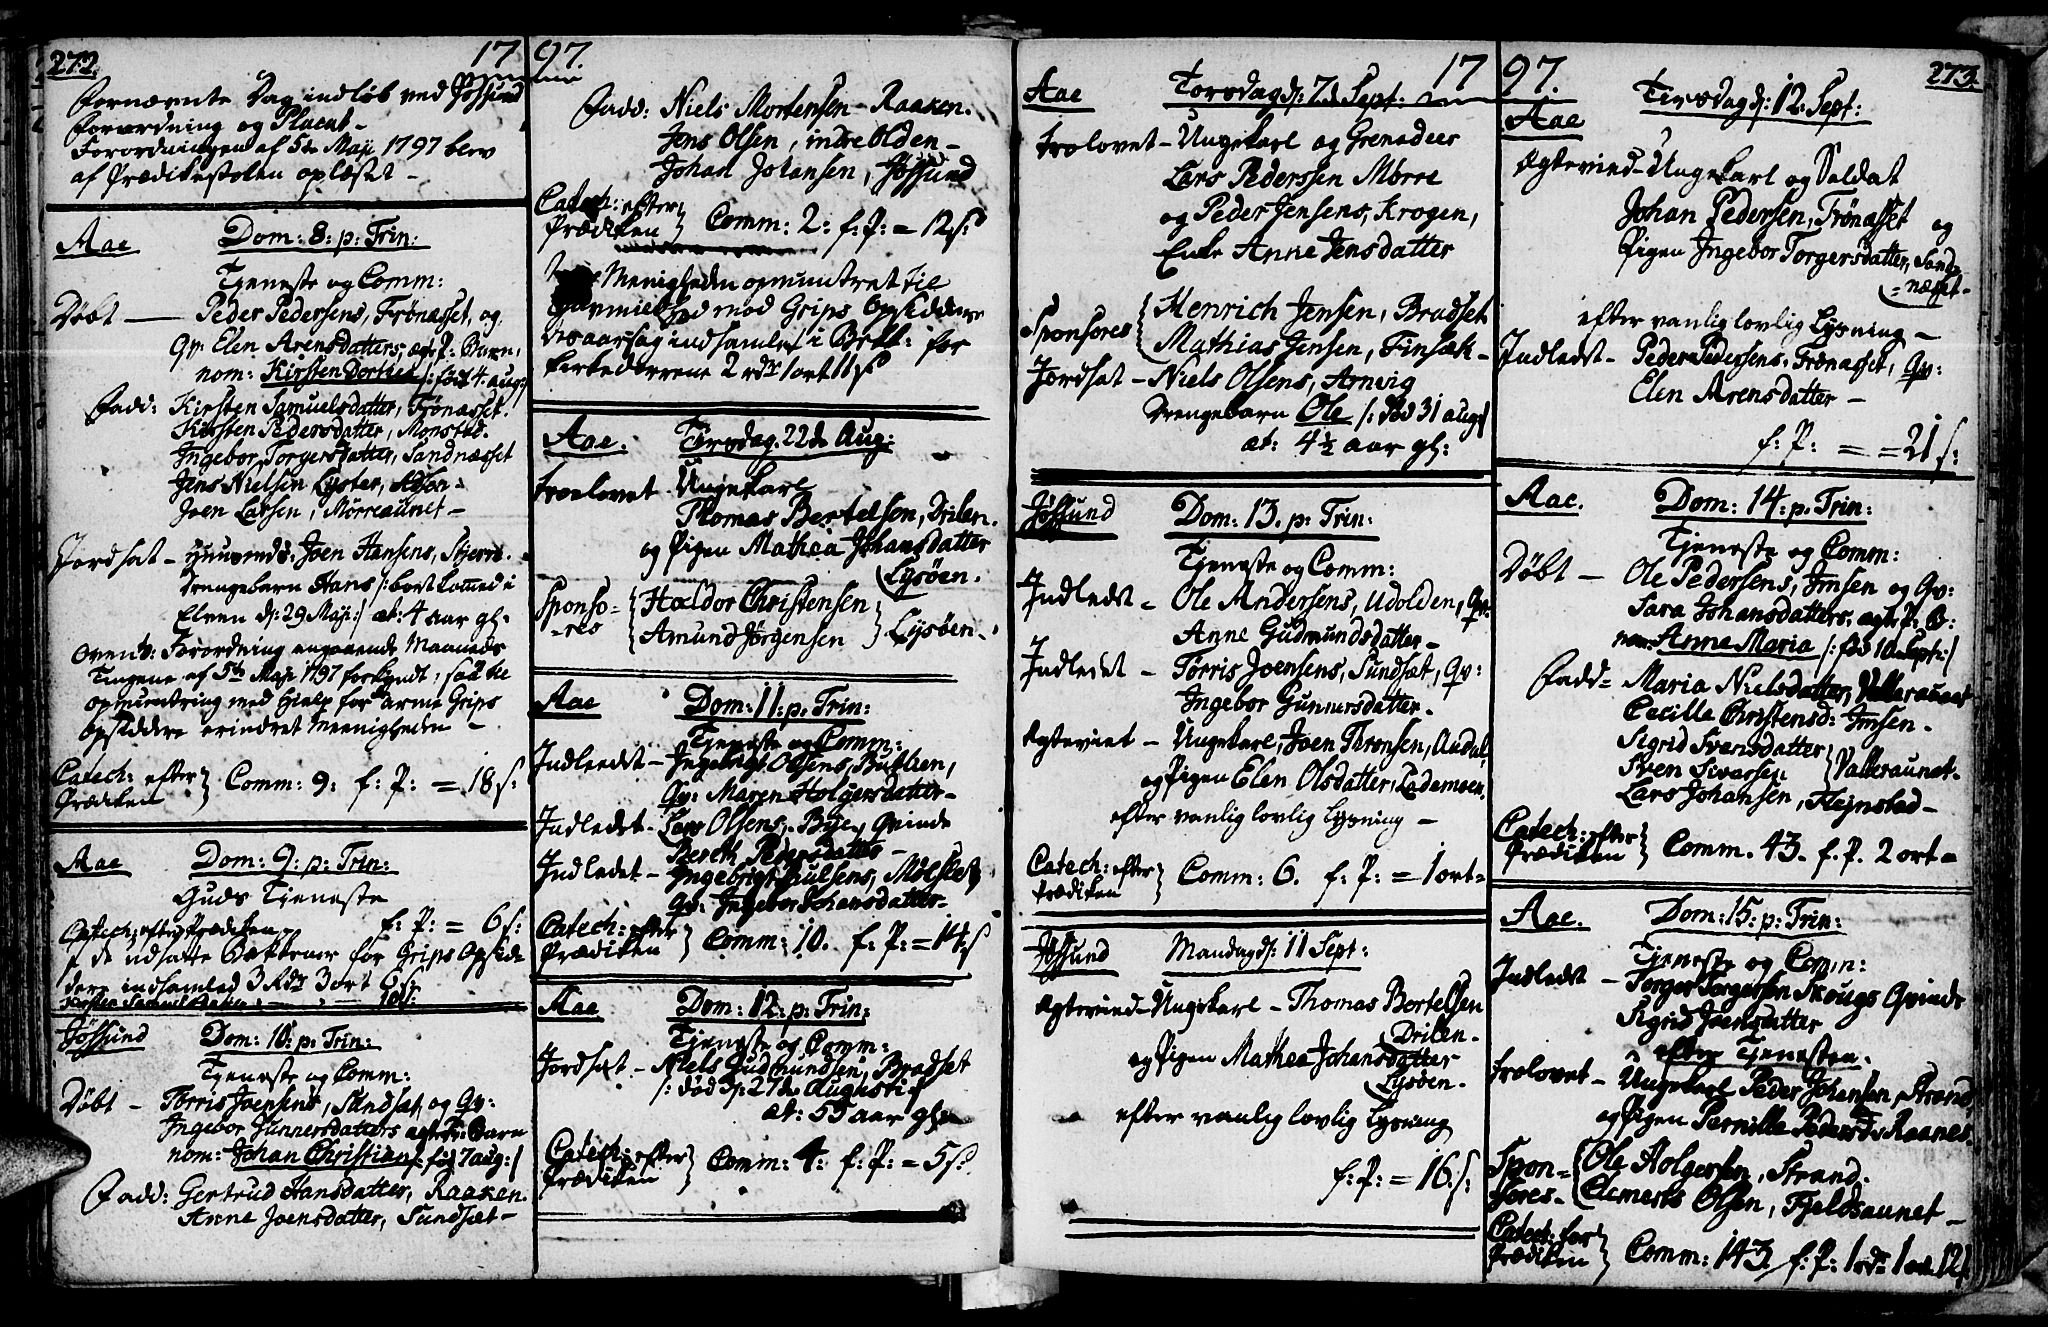 272.
17
97.
fornævnte Dag indløb ved Jøssund
forordning og Placat -
Forordningen af 5te Maji 1797 blev
af Prædikestolen oplæset -
Aae Dom: 8: p: Trin:
Tjeneste og Comm:
Døbt - Peder Pedersens, Frønæsset, og
Qv: Elen Arensdatters, ægte: Barn,
nom: Kirsten Dorthea /: fød 4. aug:/
Fadd: Kirsten Samuelsdatter, Frønæsset.
Kirsten Pedersdatter, Monstad.
Ingebor Torgersdatter, Sandnæsset
Jens Nielsen Lyster,
Joen Larsen, Mørreaunet -
Jordsat - Huusmds: Joen Hansens,
Drengebarn Hans /: bortkommed i
Elven d: 29 Maji :/ æt: 4 aar gl:
Forordning angaaende Maaneds
Tingene af 5te Maji 1797 forkyndt; saa og til
opmuntring med Hielp for arme Grips
Opsiddere erindret Meenigheden -
Catech: efter
Prædiken } Comm: 9: f: P: = 18 s:
Aae Dom: 9: p: Trin:
Guds Tjeneste
Catech: efter Prædiken. f: P: = 6 s:
I de udsatte Bækkener for Grips Opsid
dere indsamled 3 Rdr 3 ort 6 s:
Jøssund Dom: 10: p: Trin:
Tjeneste og Comm:
Døbt - Tørris Joensens, Sundsæt, og Qv:
Ingebor Gunnersdatters ægte: Barn
nom: Johan Christian /: fød 7 aug:/
Fadd: Gertrud Hansdatter, Raaken.
Anne Joensdatter, Sundsæt -
Fadd: Niels Mortensen - Raaken.
Jens Olsen, indre Olden -
Johan Johansen, Jøssund
Catech: efter
Prædiken } Comm: 2: f: P: = 12 s:
Menigheden opmuntret til
mod Grips Opsiddere
indsamles i Bekk: for
Kirkedørrene 2 rdr 1 ort 11 s
Aae. Tirsdag. 22de Aug:
trolovet Ungekarl
Thomas Bertelsen, Drilen.
og Pigen Mathea Johansdatter
Lysøen.
Sponso-
-res { Haldor Christensen
Amund Jørgensen } Lysøen -
Aae Dom: 11: p: Trin:
Tjeneste og Comm:
Indleedt - Ingebrigt Olsens, Butlien,
Qv: Maren Holgersdatter -
Indledet - Lars Olsens, Bye, Qvinde
Bereth Pedersdatter -
Indledet - Ingebrigt Juulsens,
Qv: Ingebor Johansdatter -
Catech: efter
Prædiken } Comm: 10. f: P: = 14 s
Aae Dom: 12: p: Trin:
Tjeneste og Comm:
Jordsat - Niels Gudmundsen, Bradset
/: død d: 27de Augusti :/
æt: 55 aar gl:
Catech: efter
Prædiken } Comm: 4: f: P: = 5 s:
17
97.
273.
Aae Torsdag d: 7de Sept:
trolovet - Ungekarl og Grenadeer
Lars Pederssen Mørre
og Peder Jensens, Krogen,
Enke Anne Jensdatter
Sponsores { Henrich Jensen, Bradset
Mathias Jensen, Finsæk -
Jordsat - Niels Olsens, Arnevig
Drengebarn Ole /: død 31 aug:/
æt: 4½ aar gl:
Jøssund Dom: 13. p: Trin:
Tjeneste og Comm:
Indledet - Ole Andersens, Udolden, Qv:
Anne Gudmundsdatter -
Indledet - Tørris Joensens, Sundsæt, Qv:
Ingebor Gunnersdatter -
Ægteviet - Ungekarl, Joen Thronsen,
og Pigen Elen Olsdatter, Lademoen.
efter vanlig lovlig Lysning -
Catech: efter
Prædiken } Comm: 6. f: P: = 1 ort -
Jøssund Mandag d: 11 Sept:
Ægteviet - Ungekarl - Thomas Bertelsen
Drilen -
og Pigen Mathea Johansdatter
Lysøen -
efter vanlig lovlig Lysning
f: P: = 16 s:
Tirsdag d: 12. Sept:
Aae
Ægteviet - Ungekarl og Soldat
Johan Pedersen, Frønæsset og
Pigen Ingebor Torgersdatter, Sand-
- næsset -
efter vanlig lovlig Lysning -
Indledet - Peder Pedersens, Frønæsset, Qv:
Elen Arensdatter -
f: P: = = 21 s:
Aae. Dom: 14: p: Trin:
Tjeneste og Comm:
Døbt - Ole Pedersens, Imsen og Qv:
Sara Johansdatters: ægte: B:
nom: Anne Maria /: fød 10 Sept:/
Fadd = Maria Nielsdatter, Valleraunet
Cecilia Christensd: Imsen -
Sigrid Svensdatter
Sven Sivarsen } Valleraunet -
Lars Johansen, Hejnstad -
Catech: efter
Prædiken } Comm. 43. f. P. 2 ort =
Aae. Dom: 15: p: Trin:
Tjeneste og Comm:
Indledt - Torger Torgersen Skougs Qvinde
Sigrid Joensdatter
efter Tjenesten.
trolovet - Ungekarl Peder Johansen, Strand
og Pigen Pernille Pedersd: Raanes.
Spon-
sores - { Ole Holgersen, Strand.
Clemerts Olsen, Fjeldsaunet -
Catech: for
Prædiken } Comm: 143 f: P: 1 rdr 1 ort 12 s